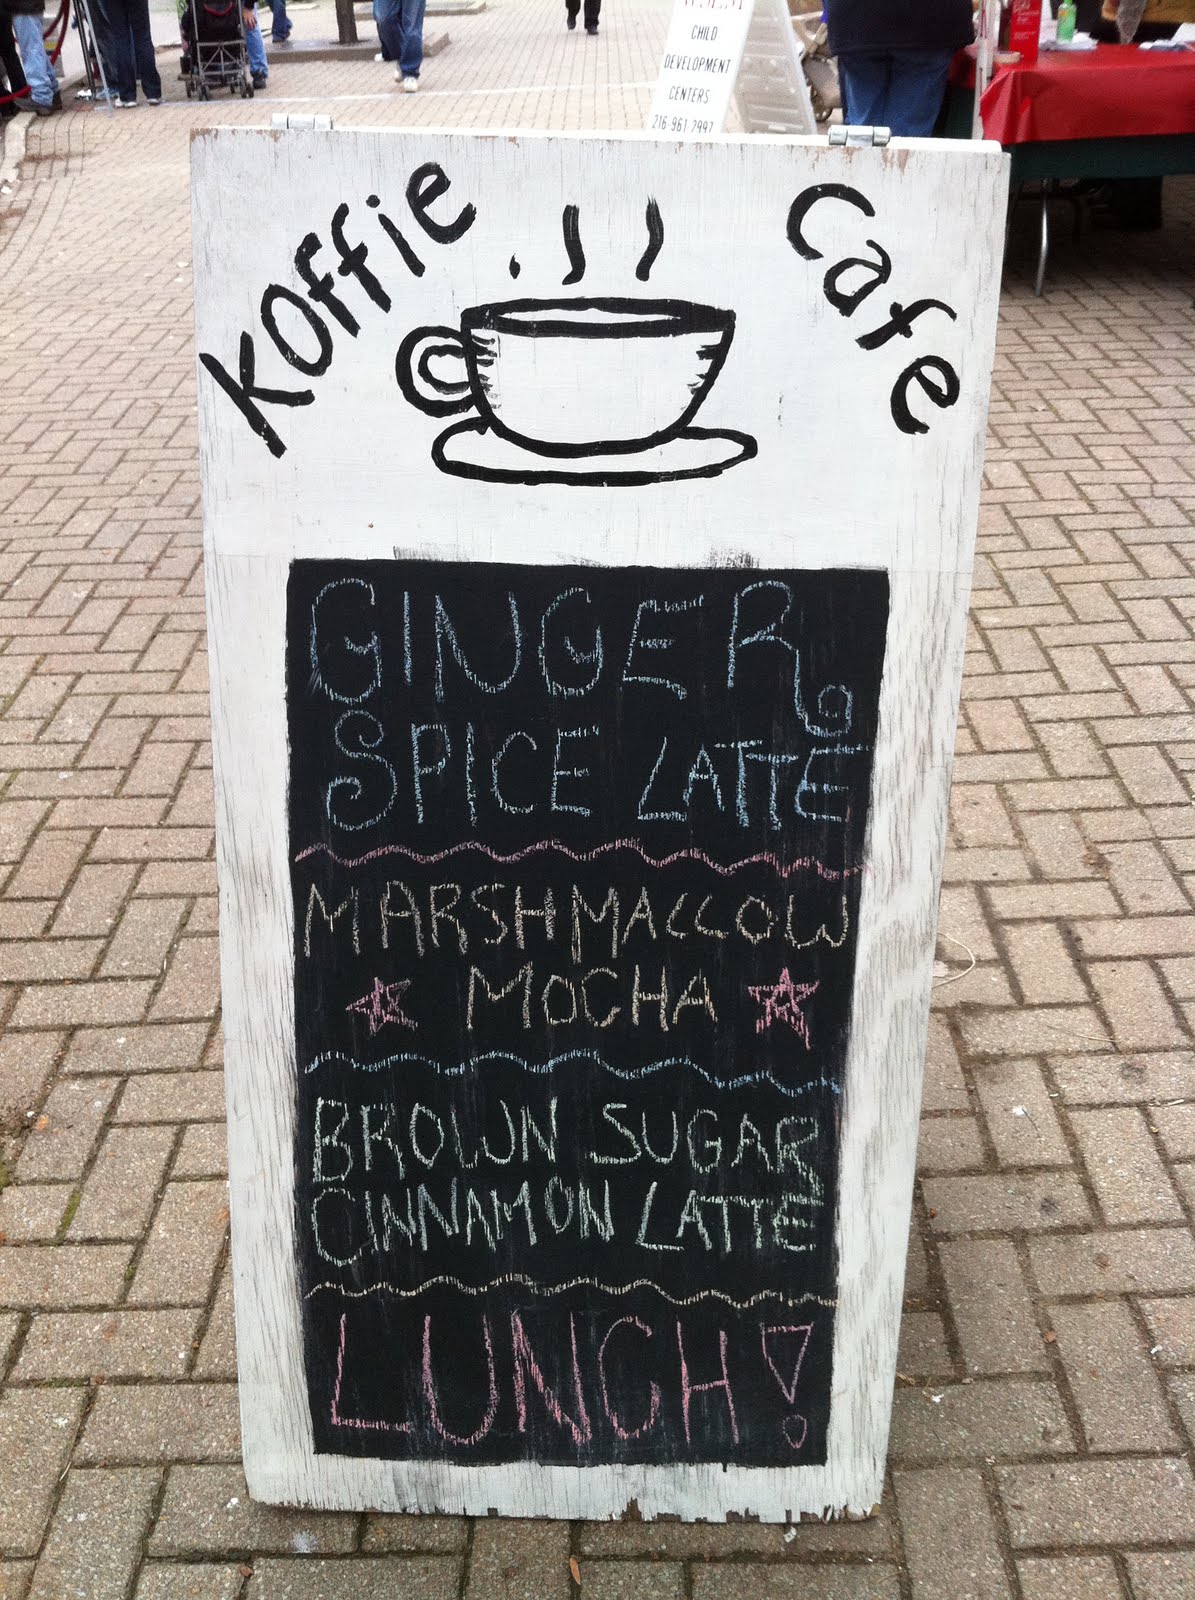 CHILD
DEVELOPMENT
CENTERS
216-961-2997
Koffie Cafe
GINGER
SPICE LATTE
MARSHMALLOW
MOCHA
BROWN SUGAR
CINNAMON LATTE
LUNCH!